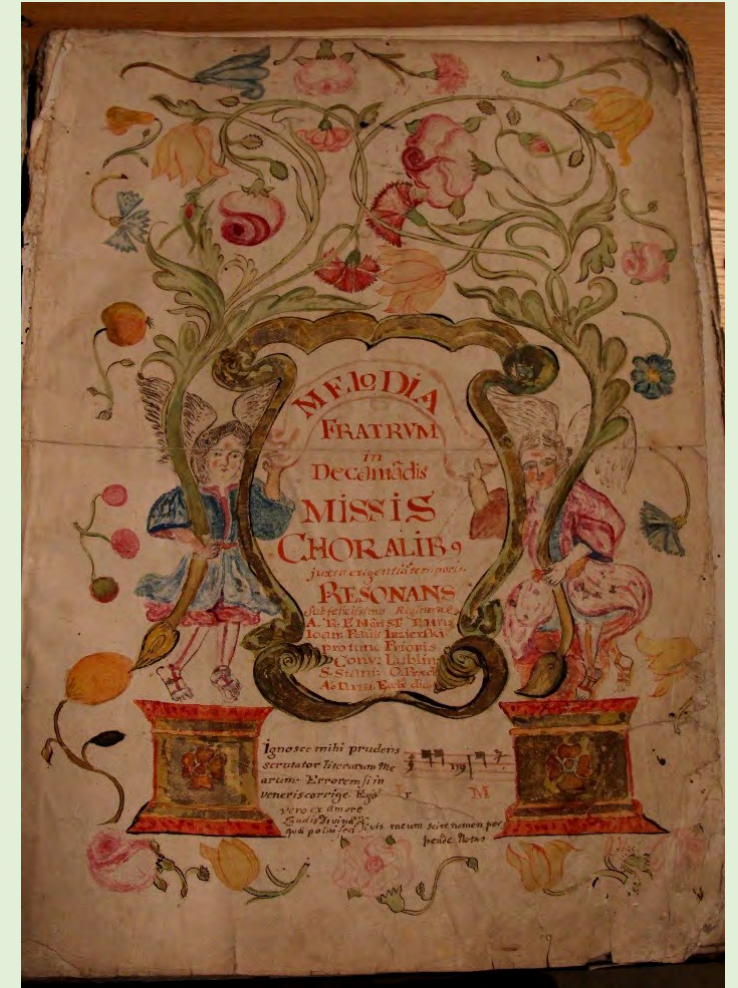 MEloDIA
FRATRVM
in
Decamādis
MISSIS
CHORALIB9
juxta exigentiā temporis
RESONANS
sub felicissimo Regimine
A. R. E
Ioan
pro tunc Prioris
Conv: Lublin
S. Stani: O. Præd:
Ignosce mihi prudens
scrutator literarum me
arum Errorem si in
veneris corrige Ego
vero ex amore
Laudis Divinæ
quâ polui feci
Ir M
Si vis meum scire nomen per
pende Notas